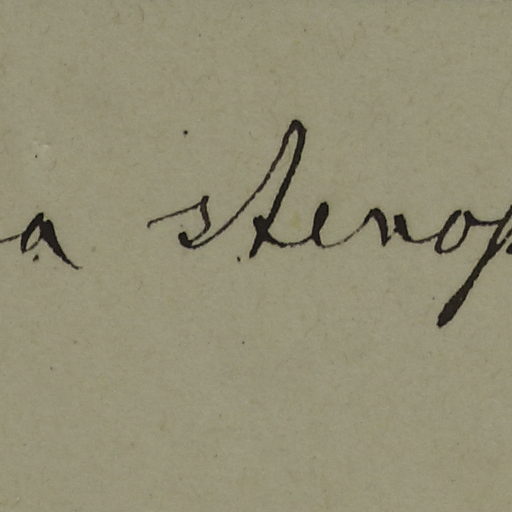 a stenop